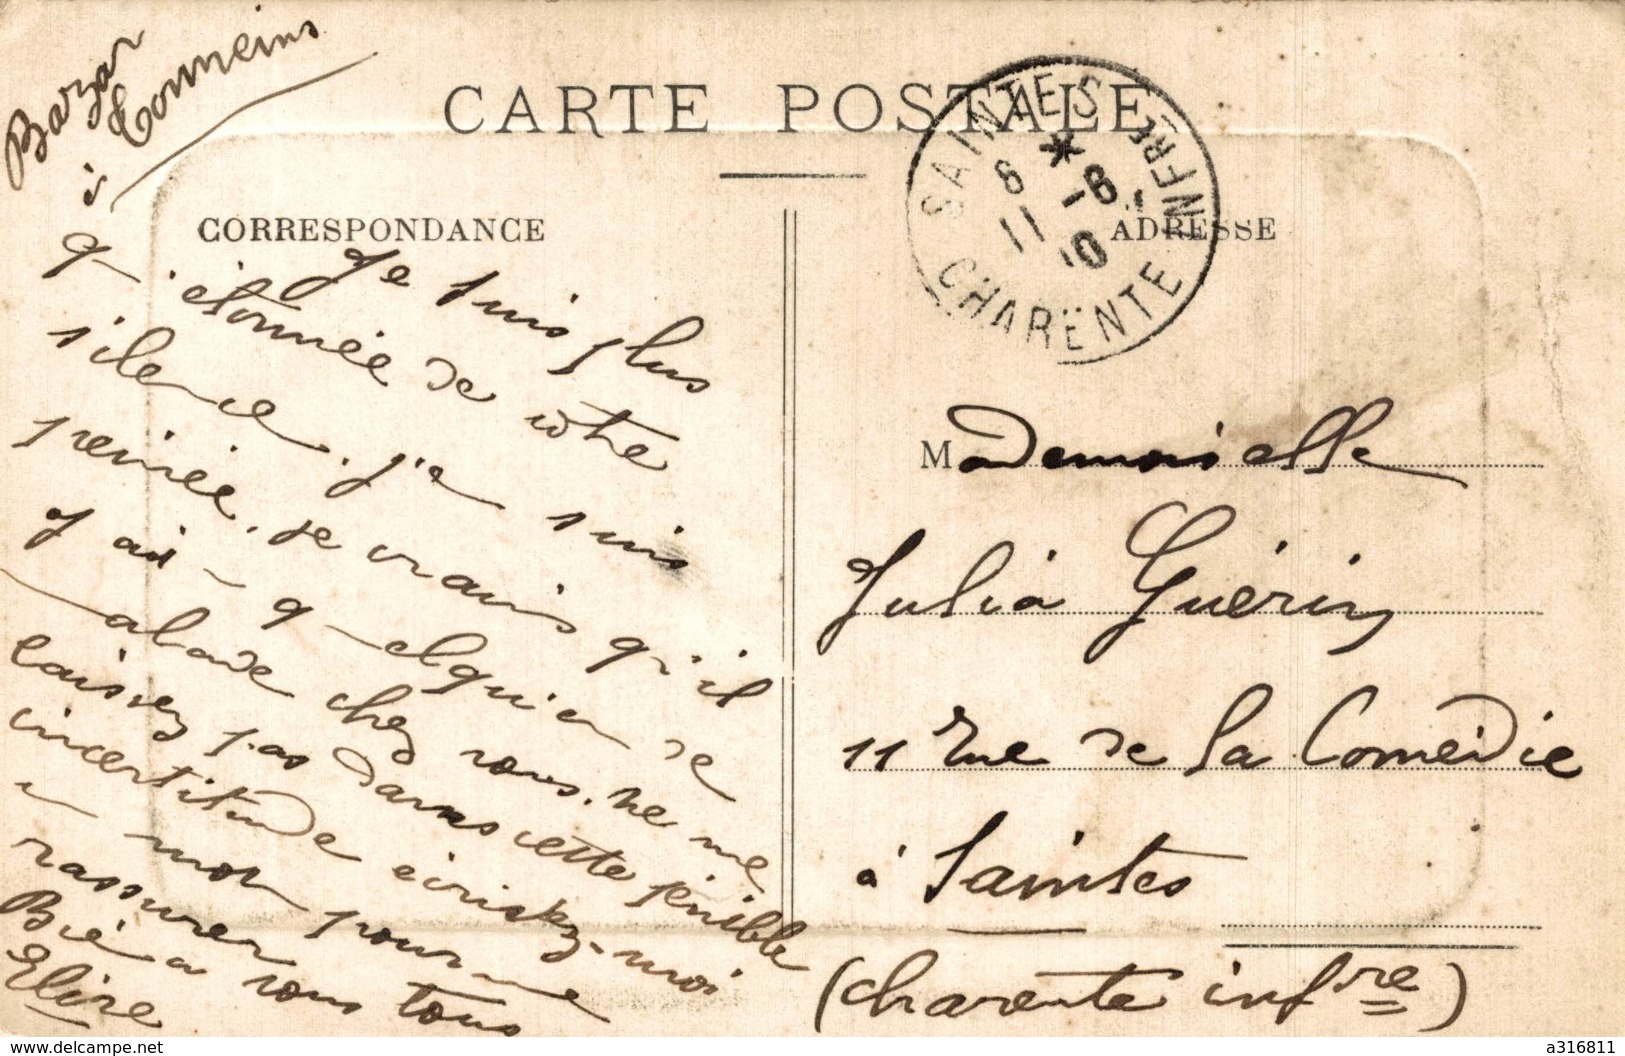 Bazar
à Tonneins
CARTE POSTALE
SAINTES
CHARENTE INFRE
6 * -6
11 10
CORRESPONDANCE
ADRESSE
Je suis plus
qu'étonnée de votre
silence. j'en suis
peinée. Je crains qu'il
y ait quelqu'un de
malade chez vous. ne me
laissez pas dans cette pénible
incertitude écrivez-moi
un mot pour me
rassurer
Bien à vous tous
Elise
Mademoiselle
Julia Guérin
11 Rue de la Comédie
à Saintes
(Charente infre)
delcampe.net
a316811